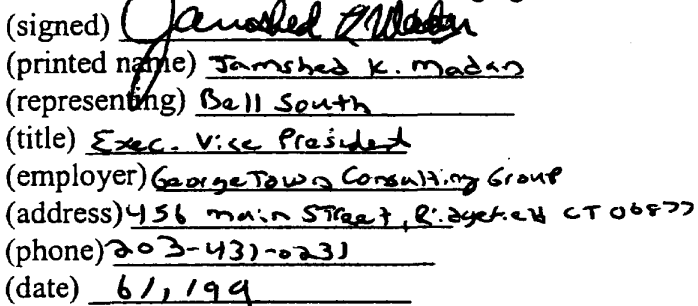 (signed) Jamshed K Madan
(printed name) Jamshed K. Madan
(representing) Bell South
(title) Exec. Vice President
(employer) Georgetown Consulting Group
(address) 456 main Street, Ridgefield CT 06877
(phone) 203-431-0231
(date) 6/1/99